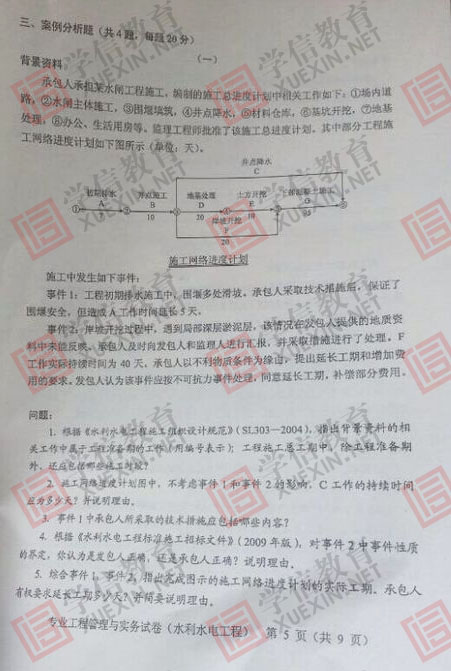 三、案例分析题（共4题，每题20分）
（一）
背景资料
承包人承担某水闸工程施工，编制的施工总进度计划中相关工作如下：①场内道
路，②水闸主体施工，③围堰填筑，④井点降水，⑤材料仓库，⑥基坑开挖，⑦地基
处理，⑧办公、生活用房等。监理工程师批准了该施工总进度计划，其中部分工程施
工网络进度计划如下图所示（单位：天）。
井点降水
C
井点施工
地基处理
土方开挖
A
B
D
E
10
20
10
岸坡开挖
F
20
施工网络进度计划
施工中发生如下事件：
事件1：工程初期排水施工中，围堰多处滑坡。承包人采取技术措施后，保证了
围堰安全，但造成A工作时间延长5天。
事件2：岸坡开挖过程中，遇到局部深层淤泥层，该情况在发包人提供的地质资
料中未能反映。承包人及时向发包人和监理人进行汇报，并采取措施进行了处理。F
工作实际持续时间为40天。承包人以不利物质条件为缘由，提出延长工期和增加费
用的要求。发包人认为该事件应按不可抗力事件处理，同意延长工期，补偿部分费用。
问题：
1. 根据《水利水电工程施工组织设计规范》（SL303—2004），指出背景资料的相
关工作中属于工程准备期的工作（用编号表示）；工程施工总工期中，除工程准备期
外，还应包括哪些施工时段？
2. 施工网络进度计划图中，不考虑事件1和事件2的影响，C工作的持续时间
应为多少天？并说明理由。
3. 事件1中承包人所采取的技术措施应包括哪些内容？
4. 根据《水利水电工程标准施工招标文件》（2009年版），对事件2中事件性质
的界定，你认为是发包人正确，还是承包人正确？说明理由。
5. 综合事件1、事件2，指出完成图示的施工网络进度计划的实际工期。承包人
有权要求延长工期多少天？并简要说明理由。
专业工程管理与实务试卷（水利水电工程） 第 5 页（共 9 页）
学信教育
XUEXIN.NET